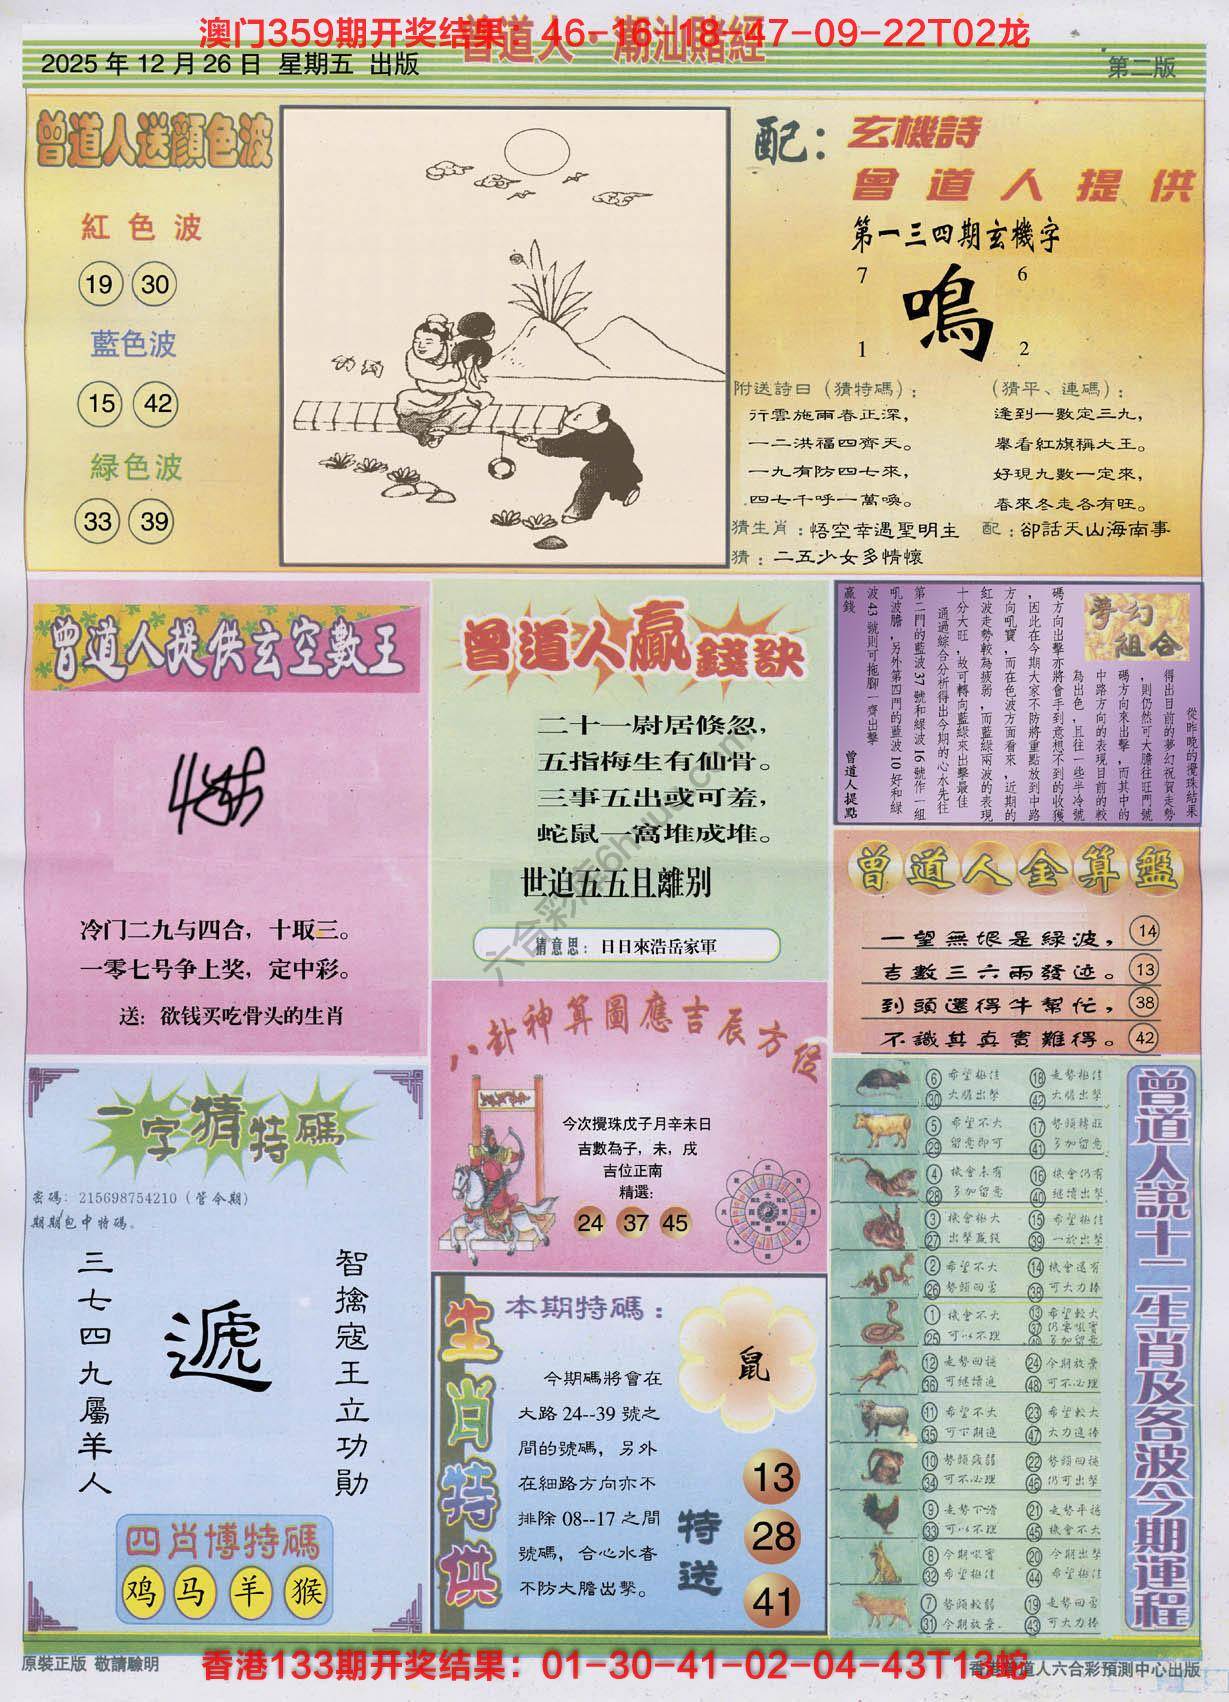 澳门359期开奖结果：46-16-18-47-09-22T02龙
曾道人·潮汕賭經
2025年12月26日 星期五 出版
第二版
曾道人送顏色波
紅色波
19 30
藍色波
15 42
綠色波
33 39
配：玄機詩
曾道人提供
第一三四期玄機字
7 6
鳴
1 2
附送詩曰（猜特碼）：
行雲施雨春正深，
一二洪福四齊天。
一九有防四七來，
四七千呼一萬喚。
（猜平、連碼）：
逢到一數定三九，
舉看紅旗稱大王。
好現九數一定來，
春來冬走各有旺。
猜生肖：悟空幸遇聖明主 配：卻話天山海南事
猜：二五少女多情懷
曾道人提供玄空數王
冷门二九与四合，十取三。
一零七号争上奖，定中彩。
送：欲钱买吃骨头的生肖
曾道人贏錢訣
二十一尉居倏忽，
五指梅生有仙骨。
三事五出或可羞，
蛇鼠一窩堆成堆。
世迫五五且離别
猜意思：日日來浩岳家軍
夢幻組合
從昨晚的攪珠結果
得出目前的夢幻祝賀走勢
，則仍然可大膽往旺門號
碼方向來出擊，而其中的
中路方向的表現目前的較
為出色，且往一些半冷號
碼方向出擊亦將會手到意想不到的收獲
，因此在今期大家不防將重點放到中路
方向吼寶，而在色波方面看來，近期的
紅波走勢較為疲弱，而藍綠兩波的表現
十分大旺，故可轉向藍綠來出擊最佳
通過綜合分析得出今期的心水先往
第二門的藍波37號和綠波16號作一組
吼波膽，另外第四門的藍波10好和綠
波43號則可拖腳一齊出擊
贏錢
曾道人提點
曾道人金算盤
一望無垠是綠波， 14
吉數三六兩發迹。 13
到頭還得牛幫忙， 38
不識其真實難得。 42
八卦神算圖應吉辰方位
今次攪珠戊子月辛未日
吉數為子，未，戌
吉位正南
精選：
24 37 45
一字猜特碼
密碼：215698754210（管今期）
期期包中特碼。
三七四九屬羊人
遞
智擒寇王立功勛
四肖博特碼
鸡 马 羊 猴
生肖特供
本期特碼：
鼠
今期碼將會在
大路24--39號之
間的號碼，另外
在細路方向亦不
排除08--17之間
號碼，合心水者
不防大膽出擊。
特送
13
28
41
曾道人説十二生肖及各波今期運程
6 希望極佳 18 走勢極佳
30 大膽出擊 42 大膽出擊
5 希望不大 17 勢頭轉旺
29 留意即可 41 多加留意
4 機會未有 16 機會仍有
28 多加留意 40 繼續出擊
3 機會極大 15 希望極佳
27 出擊贏錢 39 一於出擊
2 希望不大 14 機會還有
26 勢頭回套 38 可大力捧
1 機會不大 13 希望較大
25 可以不理 37 仍要吼實
多加留意
12 走勢回穩 24 今期放棄
36 可繼續進 48 可不必理
11 希望不大 23 希望較大
35 可下期進 47 大力追捧
10 勢頭減弱 22 勢頭回穩
34 可不必理 46 仍可出擊
9 走勢下滑 21 走勢平穩
33 可以不理 45 機會不大
8 今期吼實 20 今期出擊
32 希望極佳 44 希望極佳
7 勢頭較弱 19 走勢回套
31 今期放棄 43 可大力捧
六合彩库6huu.com
原裝正版 敬請驗明
香港133期开奖结果：01-30-41-02-04-43T13蛇
香港曾道人六合彩預測中心出版